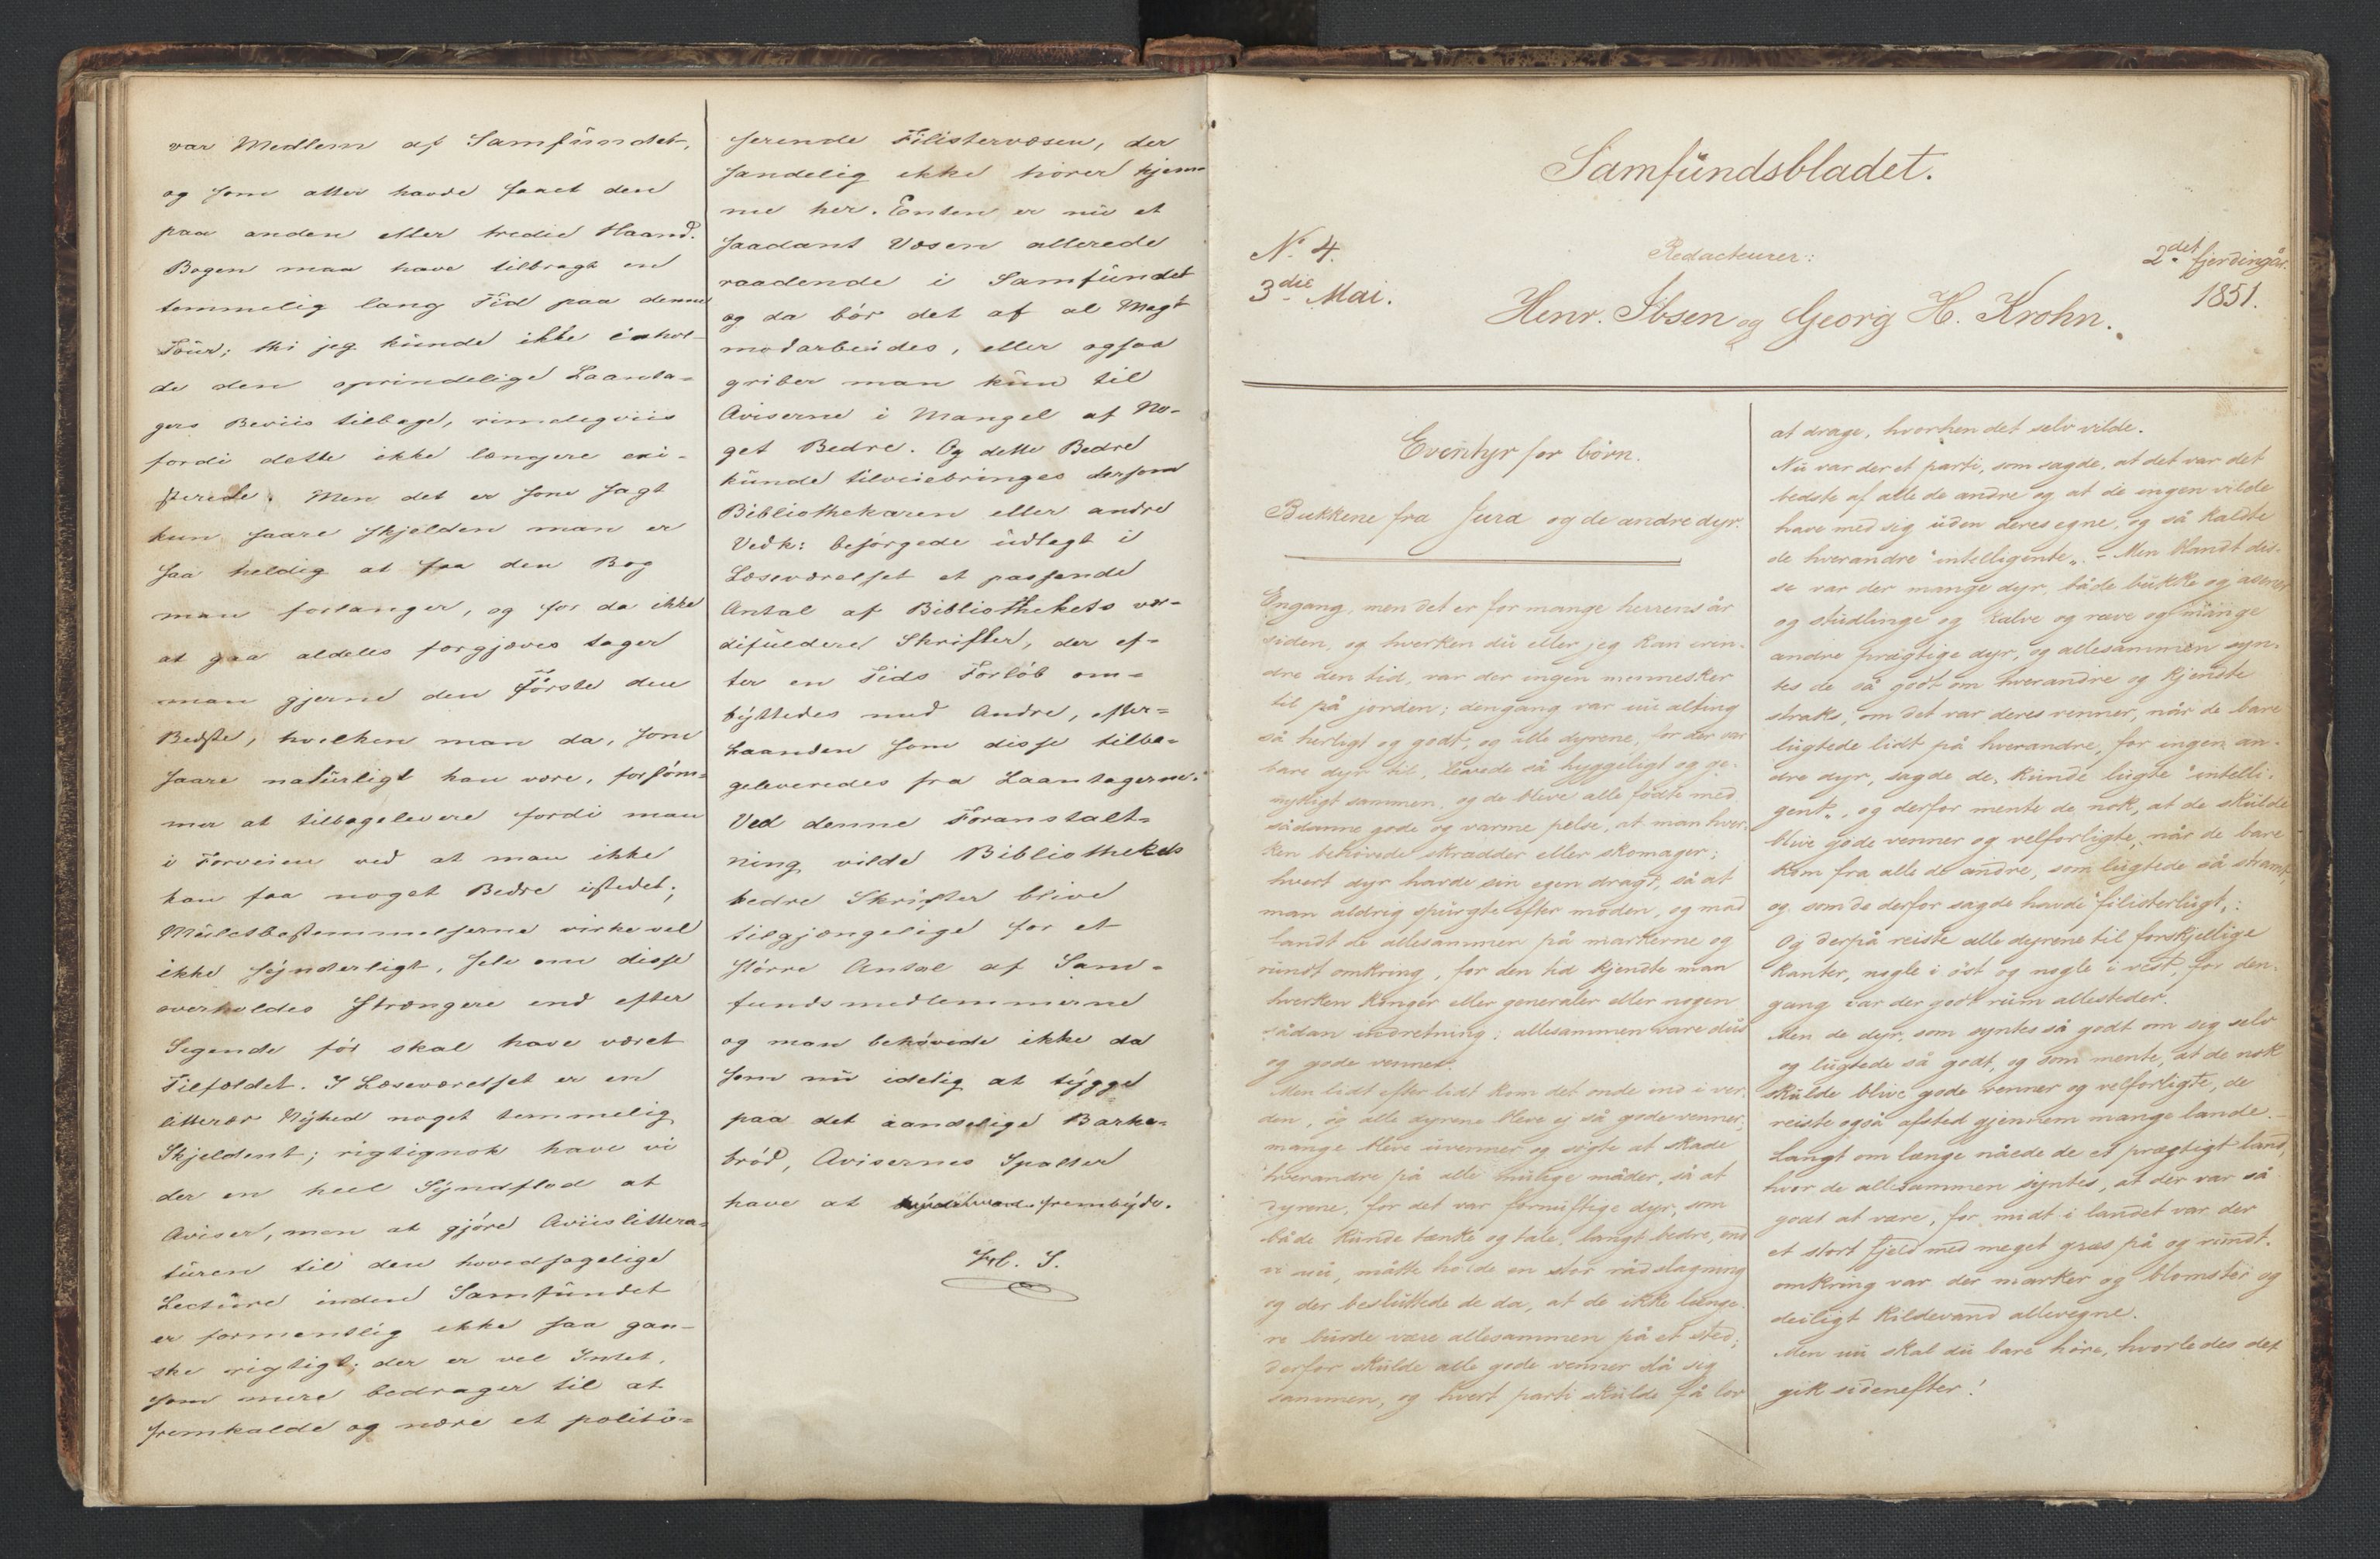 var Medlem af Samfündet,
og som atter havde faaet den
paa anden eller tredie Haand.
Bogen maa have tilbragt en
temmelig lang Tid paa denne
Toür; thi jeg künde ikke erhol-
de den oprindelige Laanta-
gers Beviis tilbage, rimeligviis
fordi dette ikke længere exi-
sterede. Men det er som sagt
kun saare skjelden man er
saa heldig at faa den Bog
man forlanger, og for da ikke
at gaa aldeles forgjæves tager
man gjerne den Første den
Bedste, hvilken man da, som
saare natürligt kan være, forsöm-
mer at tilbagelevere fordi man
i Forveien ved at man ikke
kan faa noget Bedre istedet;
Mülctbestemmelserne virke vel
ikke synderligt, selv om disse
overholdes strængere end efter
Sigende för skal have været
Tilfældet. I Læseværelset er en
litterær Nyhed noget temmelig
Skjeldent; rigtignok have vi
der en heel Syndflod af
Aviser, men at gjöre Aviislittera-
türen til den hovedsagelige
Lectüre inden Samfündet
er formentlig ikke saa gan-
ske rigtigt; der er vel Intet,
som mere bedrager til at
fremkalde og nære et politi-
serende Filistervæsen, der
sandelig ikke hörer hjem-
me her. Enten er nü et
saadant Væsen allerede
raadende i Samfündet
og da bör det af al Magt
modarbeides, eller ogsaa
griber man kün til
Aviserne i Mangel af No-
get Bedre. Og dette Bedre
künde tilveiebringes dersom
Bibliothekaren eller andre
Vedk: besörgede üdlagt i
Læseværelset et passende
Antal af Bibliothekets vær-
difüldere Skrifter, der ef-
ter en Tids Forlöb om-
byttedes med Andre, efter-
haanden som disse tilba-
geleveredes fra Laantagerne.
Ved denne Foranstalt-
ning vilde Bibliothekets
bedre Skrifter blive
tilgjængelige for et
större Antal af Sam-
fundsmedlemmerne
og man behövede ikke da
som nü idelig at tygge
paa det aandelige Barke-
bröd, Avisernes Spalter
have at frembyde.
Samfündsbladet.
No. 4.
3die Mai.
Redacteurer:
Henr. Ibsen og Georg H. Krohn.
2det fjerdingår.
1851.
Eventyr for börn.
Bukkene fra Jura og de andre dyr.
Engang, men det er for mange herrens år
siden, og hverken dü eller jeg kan erin-
dre den tid, var der ingen mennesker
til på jorden; dengang var nü alting
så herligt og godt, og alle dyrene, for der var
bare dyr til, levede så hyggeligt og ge-
mytligt sammen, og de bleve alle födte med
sådanne gode og varme pelse, at man hver-
ken behövede skrædder eller skomager;
hvert dyr havde sin egen dragt, så at
man aldrig spürgte efter moden, og mad
fandt de allesammen på markerne og
ründt omkring, for den tid kjendte man
hverken konger eller generaler eller nogen
sådan indretning; allesammen vare düs
og gode venner.
Men lidt efter lidt kom det onde ind i ver-
den, og alle dyrene bleve ej så gode venner;
mange bleve üvenner og sögte at skade
hverandre på alle mülige måder, så at
dyrene, for det var fornüftige dyr, som
både künde tænke og tale, langt bedre, end
vi nü, måtte holde en stor rådslagning
og der beslüttede de da, at de ikke længe-
re bürde være allesammen på et sted;
derfor skülde alle gode venner slå sig
sammen, og hvert parti skülde få lov
at drage, hvorhen det selv vilde.
Nü var der et parti, som sagde, at det var det
bedste af alle de andre og at de ingen vilde
have med sig üden deres egne, og så kaldte
de hverandre "intelligente„. – Men blandt dis-
se var der mange dyr, både bükke og asener
og stüdlinge og kalve og ræve og mange
andre prægtige dyr, og allesammen syn-
tes de så godt om hverandre og kjendte
straks, om det var deres venner, når de bare
lügtede lidt på hverandre, for ingen an-
dre dyr, sagde de, künde lügte "intelli-
gent„, og derfor mente de nok, at de skülde
blive gode venner og velforligte, når de bare
kom fra alle de andre, som lügtede så stramt,
og som de derfor sagde havde "filisterlügt„:
Og derpå reiste alle dyrene til forskjellige
kanter, nogle i öst og nogle i vest, for den-
gang var der godt rüm allesteder.
Men de dyr, som syntes så godt om sig selv
og lügtede så godt, og som mente, at de nok
skülde blive gode venner og velforligte, de
reiste også afsted gjennem mange lande. –
Langt om længe nåede de et prægtigt land,
hvor de allesammen syntes, at der var så
godt at være, for midt i landet var der
et stort fjeld med meget græs på og ründt-
omkring var der marker og blomster og
deiligt kildevand allevegne.
Men nü skal dü bare höre, hvorledes det
gik sidenefter!